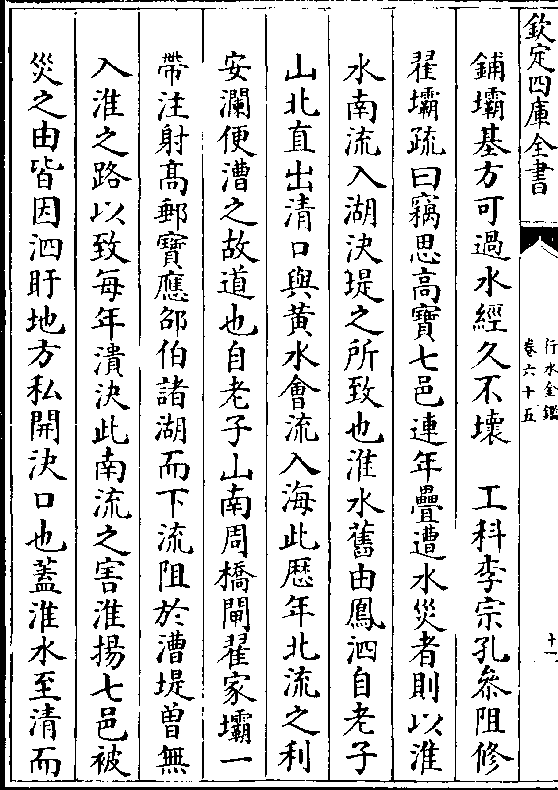 欽定四庫全書
行水金鑑
卷六十五
十一
鋪壩基方可過水經久不壞　工科李宗孔叅阻修
翟壩疏曰竊思高寶七邑連年疊遭水災者則以淮
水南流入湖決堤之所致也淮水舊由鳳泗自老子
山北直出清口與黃水會流入海此歷年北流之利
安瀾便漕之故道也自老子山南周橋閘翟家壩一
帶注射高郵寶應邵伯諸湖而下流阻於漕堤曾無
入淮之路以致每年潰決此南流之害淮揚七邑被
災之由皆因泗盱地方私開決口也蓋淮水至清而